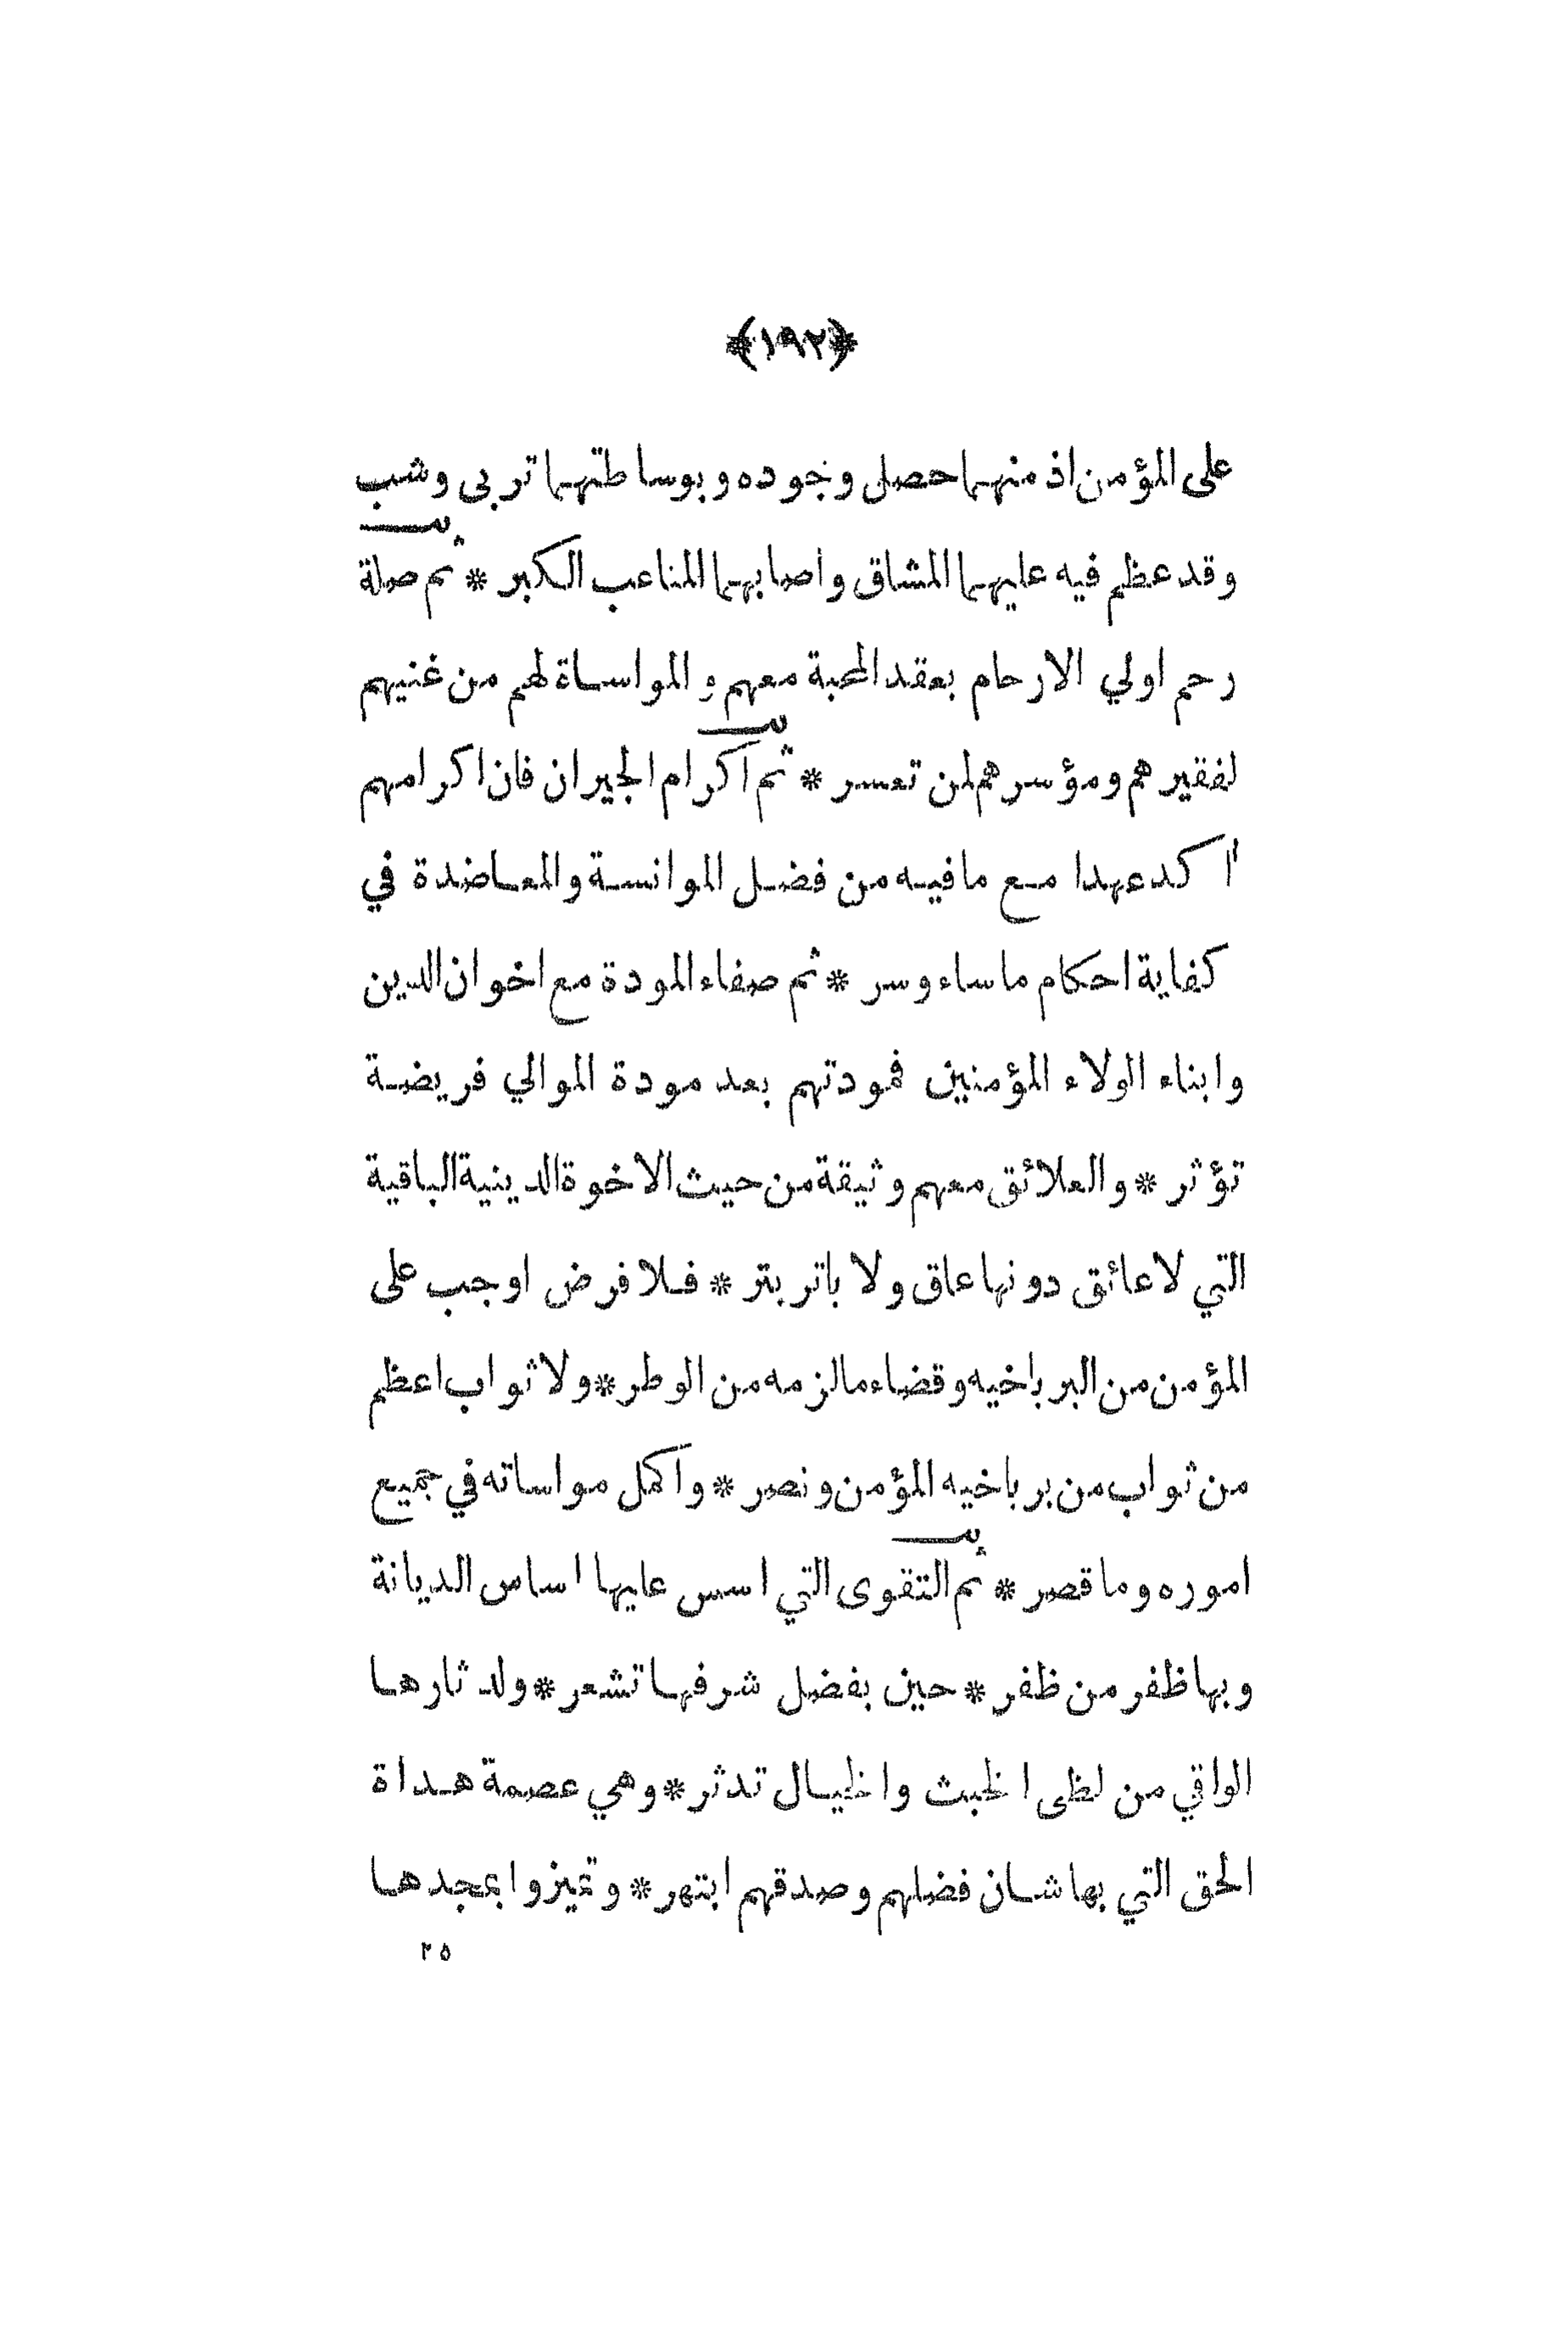 ﴿١٩٢﴾
على المؤمن اذ منهما حصل وجوده وبوساطتهما تربى وشب
وقد عظم فيه عليهما المشاق واصابهما المتاعب الكبر * ثم صلة
رحم اولي الارحام بعقد المحبة معهم والمواساة لهم من غنيهم
لفقيرهم ومؤسرهم لمن تعسر * ثم اكرام الجيران فان اكرامهم
اكد عهدا مع ما فيه من فضل الموانسة والمعاضدة في
كفاية احكام ما ساء وسر * ثم صفاء المودة مع اخوان الدين
وابناء الولاء المؤمنين فمودتهم بعد مودة الموالي فريضة
تؤثر * والعلائق معهم وثيقة من حيث الاخوة الدينية الباقية
التي لا عائق دونها عاق ولا باتر بتر * فلا فرض اوجب على
المؤمن من البر باخيه وقضاء ما لزمه من الوطر * ولا ثواب اعظم
من ثواب من بر باخيه المؤمن ونصر * واكمل مواساته في جميع
اموره وما قصر * ثم التقوى التي اسس عليها اساس الديانة
وبها ظفر من ظفر * حين بفضل شرفها تشعر * ولدثارها
الواقي من لظى الخبث والخيال تدثر * وهي عصمة هداة
الحق التي بها شان فضلهم وصدقهم ابتهر * وتميزوا بمجدها
٢٥